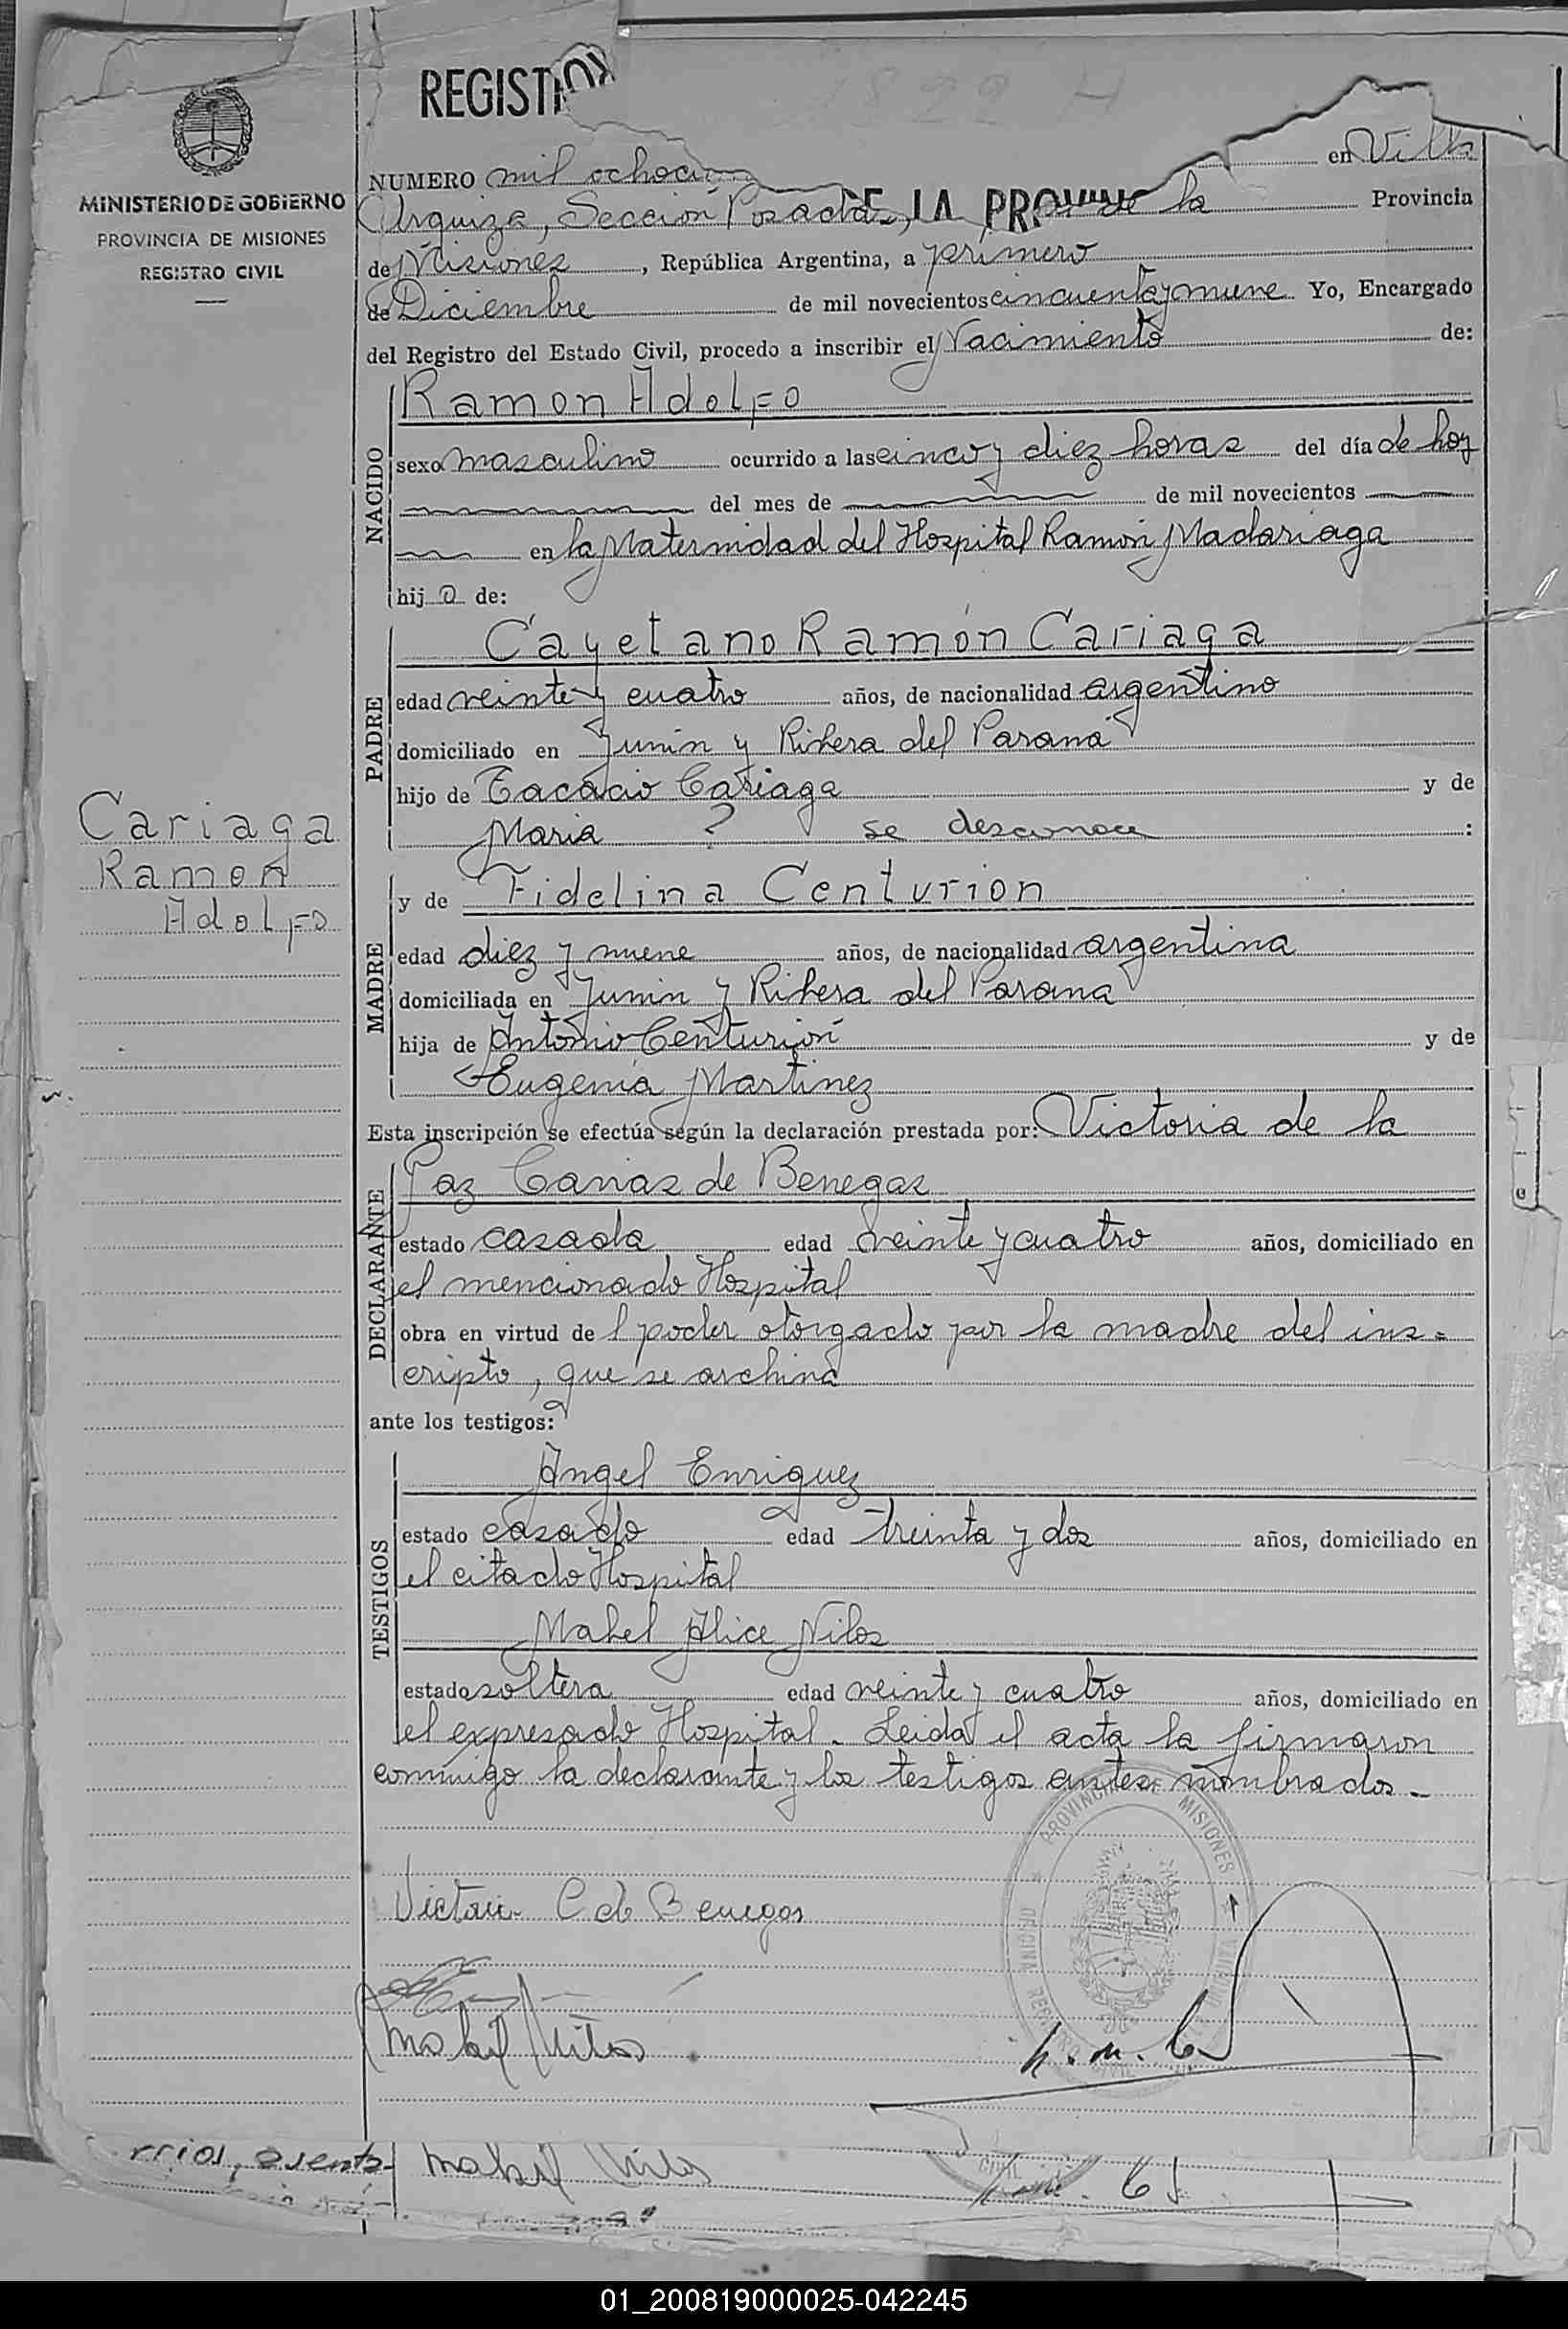 REGISTRO
MINISTERIO DE GOBIERNO
PROVINCIA DE MISIONES
REGISTRO CIVIL
NUMERO mil ochoci en Villa
Urquiza, Sección Posadas, DE LA PROVINC de la Provincia
de Misiones, República Argentina, a primero
de Diciembre de mil novecientos cincuenta y nueve Yo, Encargado
del Registro del Estado Civil, procedo a inscribir el Nacimiento de:
NACIDO
Ramon Adolfo
sexo masculino ocurrido a las cinco y diez horas del día de hoy
del mes de de mil novecientos
en la Maternidad del Hospital Ramón Madariaga
hijo de:
PADRE
Cayetano Ramón Cariaga
edad veinte y cuatro años, de nacionalidad argentino
domiciliado en Junin y Ribera del Parana
hijo de Cariaga y de
Maria ? se desconoce :
Cariaga
Ramon
Adolfo
MADRE
y de Fidelina Centurion
edad diez y nueve años, de nacionalidad argentina
domiciliada en Junin y Ribera del Parana
hija de Antonio Centurión y de
Eugenia Martinez
Esta inscripción se efectúa según la declaración prestada por: Victoria de la
DECLARANTE
Paz de Benegas
estado casada edad veinte y cuatro años, domiciliado en
el mencionado Hospital
obra en virtud de l poder otorgado por la madre del ins=
cripto, que se archiva
ante los testigos:
TESTIGOS
Angel Enriquez
estado casado edad treinta y dos años, domiciliado en
el citado Hospital
Mabel Alice Vilos
estado soltera edad veinte y cuatro años, domiciliado en
el expresado Hospital. Leida el acta la firmaron
conmigo la declarante y los testigos antes nombrados.-
PROVINCIA DE MISIONES
Victori C de Benegas
Mabel Vilos
rrios, asenta-
Mabel Vilos
CIVIL
01_200819000025-042245